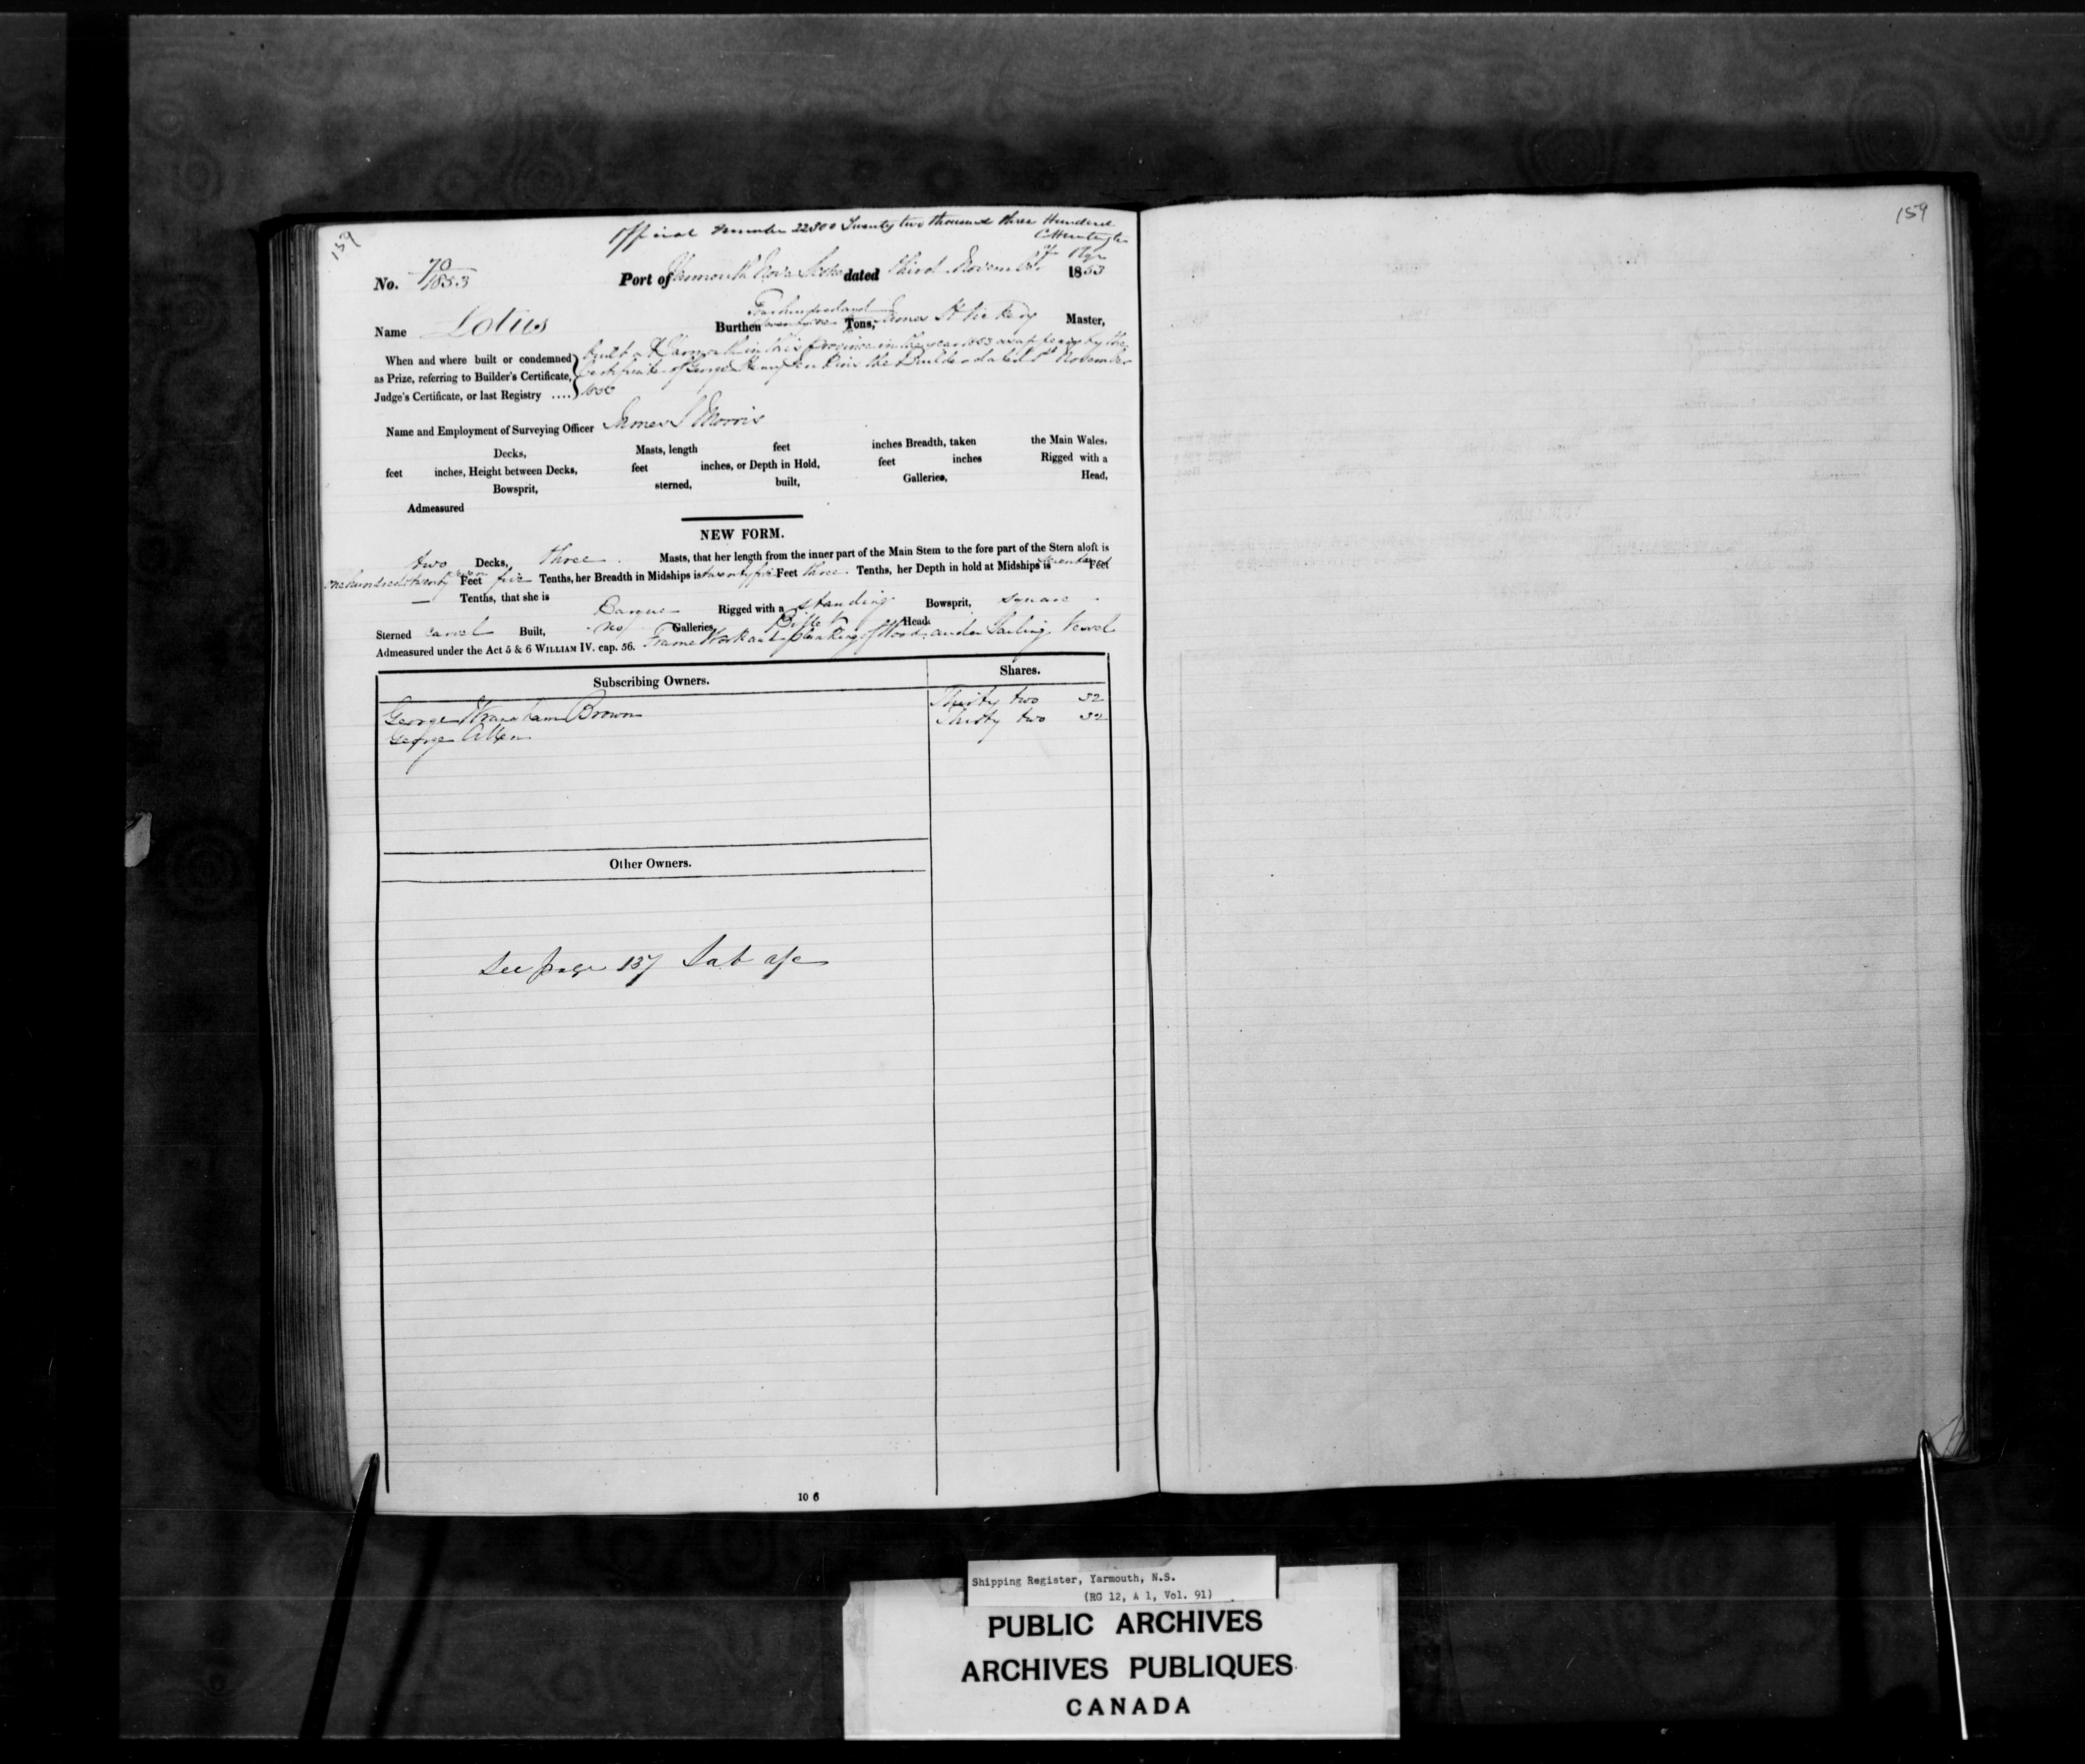 159
Official Number 22300 Twenty two thousand three Hundred
No. 70/1853 Port of Yarmouth Nova Scotia dated third November 1853
Name Lotus Burthen Tons, James Master,
When and where built or condemned as Prize, referring to Builder's Certificate, Judge's Certificate, or last Registry ....
built at Yarmouth in this Province in the year 1853 as appears by the
Certificate of George Henry Jenkins the Builder dated 1st November
1853
Name and Employment of Surveying Officer James S Morris
Decks, Masts, length feet inches Breadth, taken the Main Wales,
feet inches, Height between Decks, feet inches, or Depth in Hold, feet inches Rigged with a
Bowsprit, sterned, built, Galleries, Head,
Admeasured
NEW FORM.
two Decks, three Masts, that her length from the inner part of the Main Stem to the fore part of the Stern aloft is
one hundred & twenty seven Feet five Tenths, her Breadth in Midships is twenty five Feet three Tenths, her Depth in hold at Midships is Feet
Tenths, that she is Barque Rigged with a standing Bowsprit, square
Sterned carvel Built, no Galleries, Billet Head
Admeasured under the Act 5 & 6 WILLIAM IV. cap. 56. Frame Work and planking of Wood and a Sailing Vessel
Subscribing Owners. Shares.
George Brown Thirty two 32
George Allen Thirty two 32
Other Owners.
See page 157
10 6
159
Shipping Register, Yarmouth, N.S.
(RG 12, A 1, Vol. 91)
PUBLIC ARCHIVES
ARCHIVES PUBLIQUES
CANADA